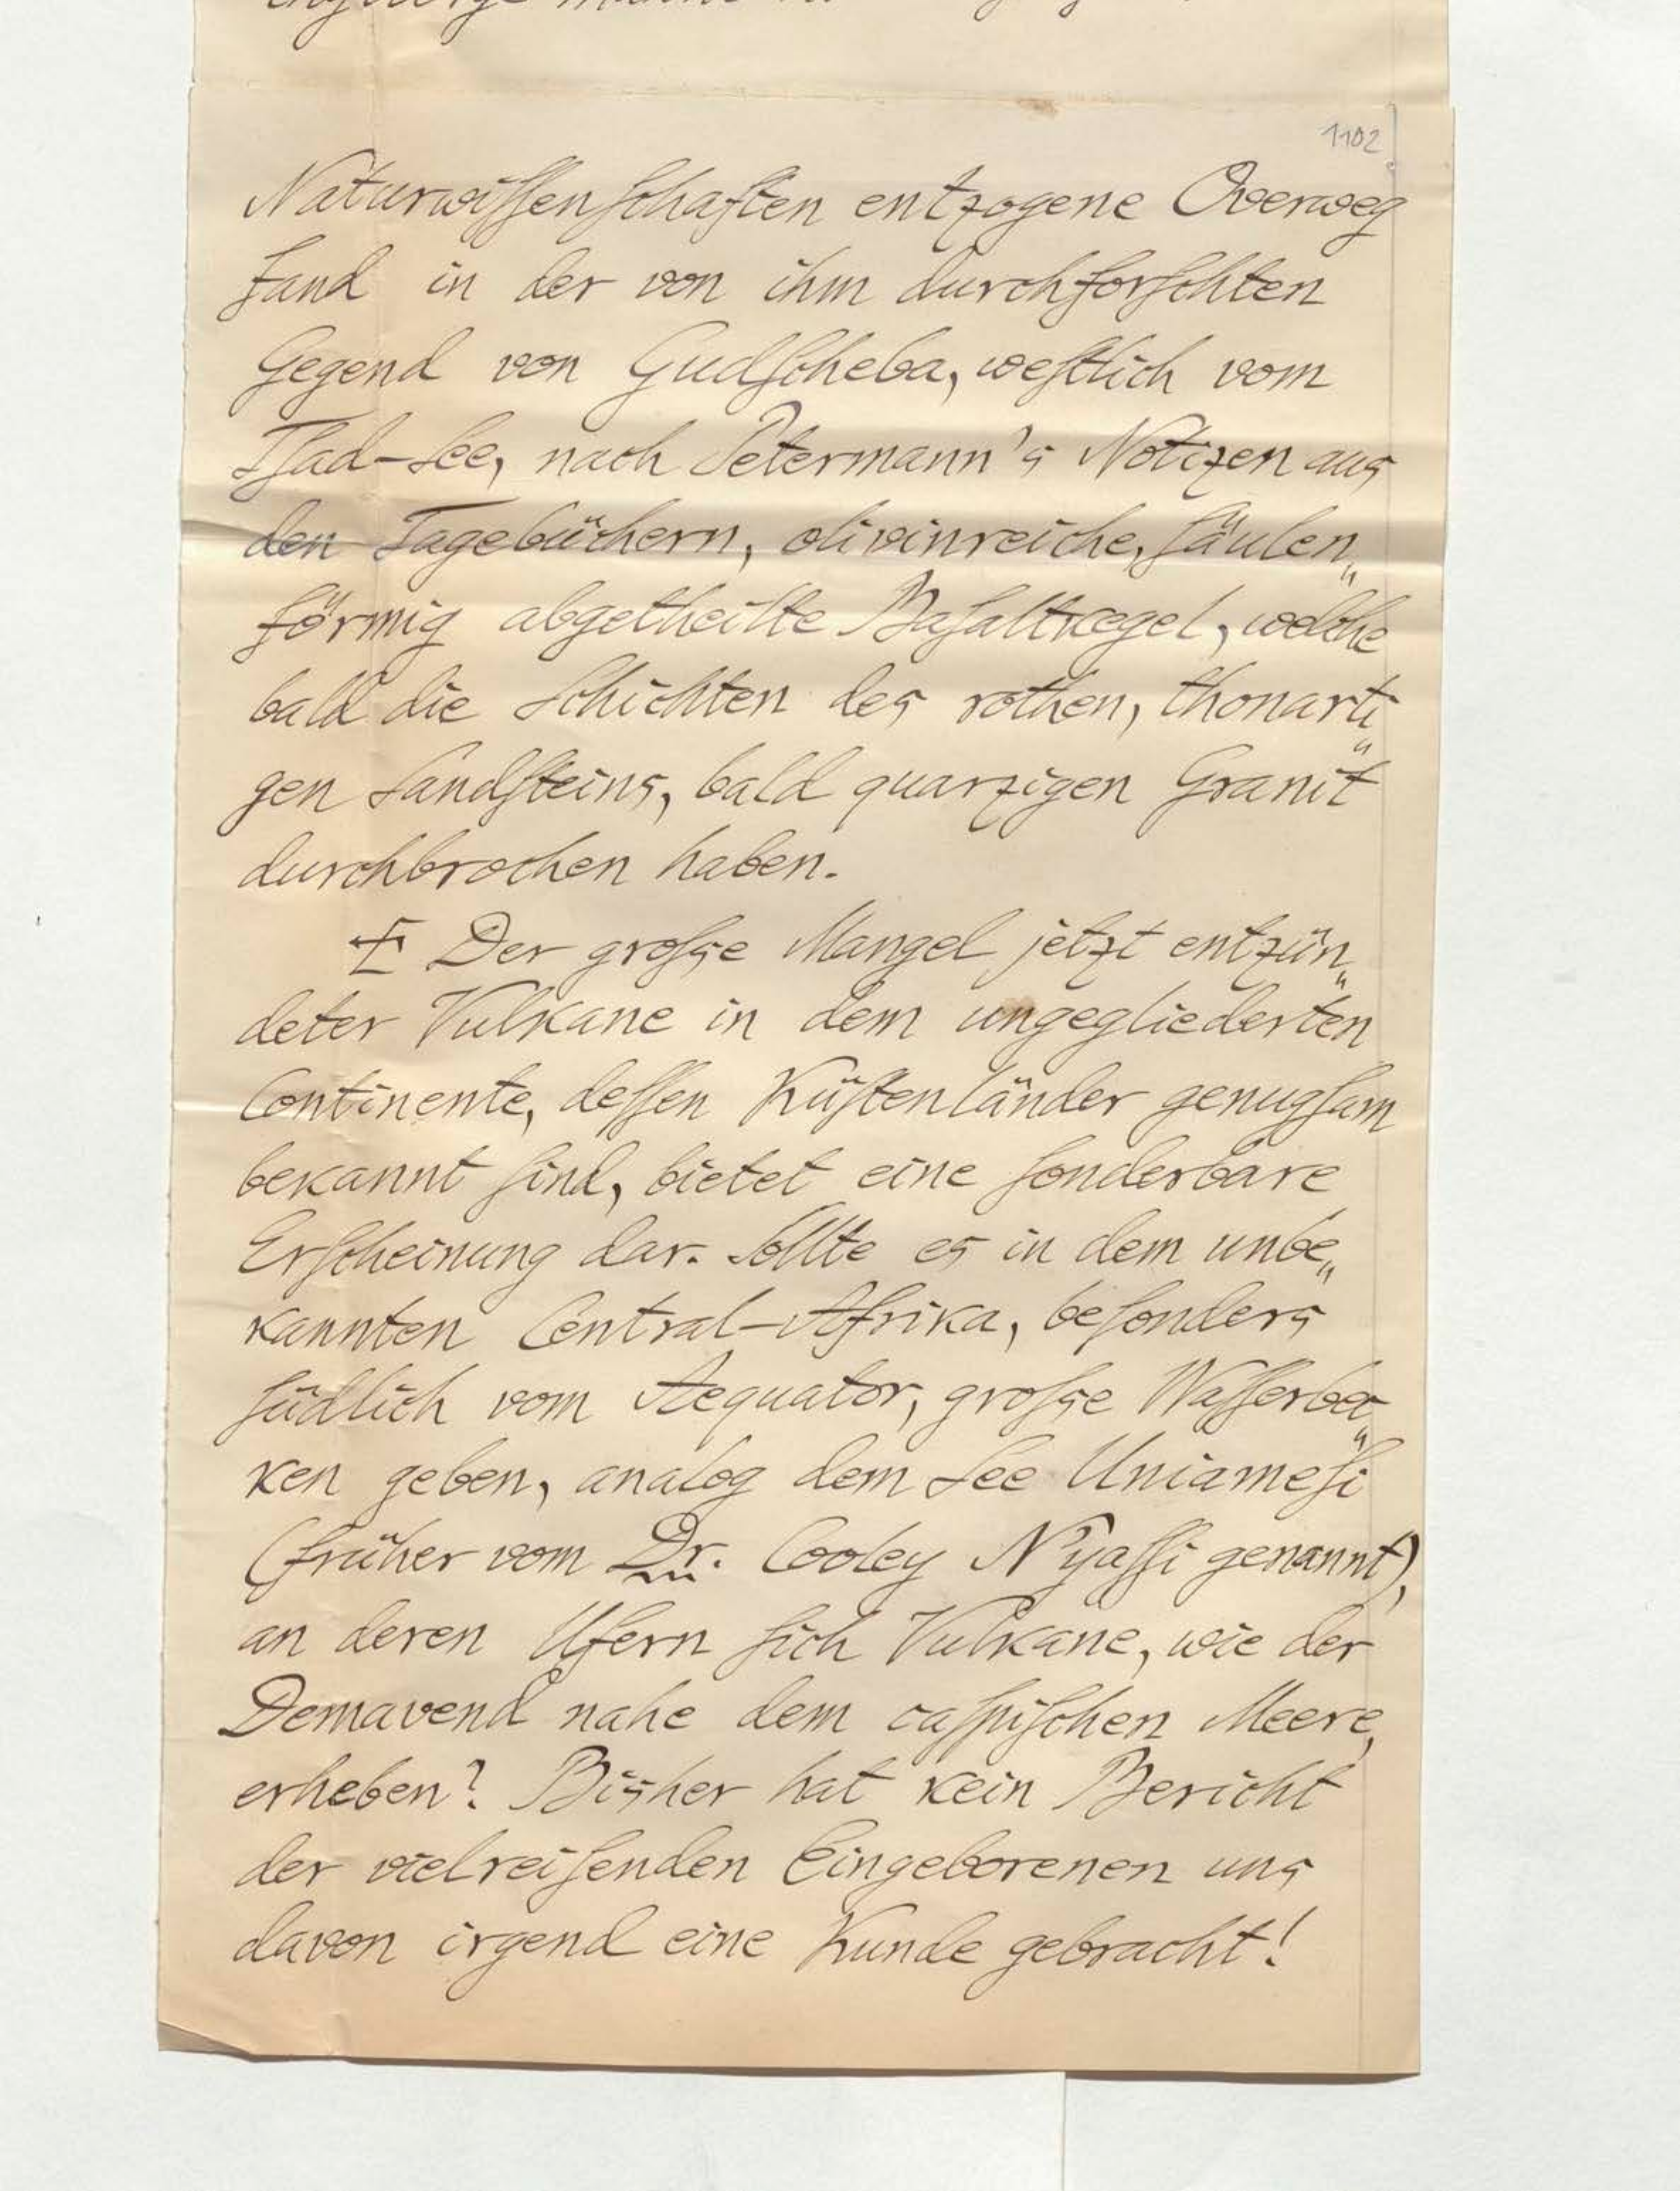 1102
Naturwiſſenſchaften entzogene Overweg
fand in der von ihm durchforſchten
Gegend von Gudſcheba, weſtlich vom
Tſad-See, nach Petermann's Notizen aus
den Tagebüchern, olivinreiche, ſäulen„
förmig abgetheilte Baſaltkegel, welche
bald die Schichten des rothen, thonarti„
gen Sandſteins, bald quarzigen Granit
durchbrochen haben.
Der groſse Mangel jetzt entzün„
deter Vulkane in dem ungegliederten
Continente, deſſen Küſtenländer genugſam
bekannt ſind, bietet eine ſonderbare
Erſcheinung dar. Sollte es in dem unbe„
kannten Central-Afrika, beſonders
ſüdlich vom Aequator, groſse Waſſerbec„
ken geben, analog dem See Uniameſi
(früher vom Dr. Cooley N'yaſſi genannt),
an deren Ufern ſich Vulkane, wie der
Demavend nahe dem caſpiſchen Meere,
erheben? Bisher hat kein Bericht
der vielreiſenden Eingeborenen uns
davon irgend eine Kunde gebracht!